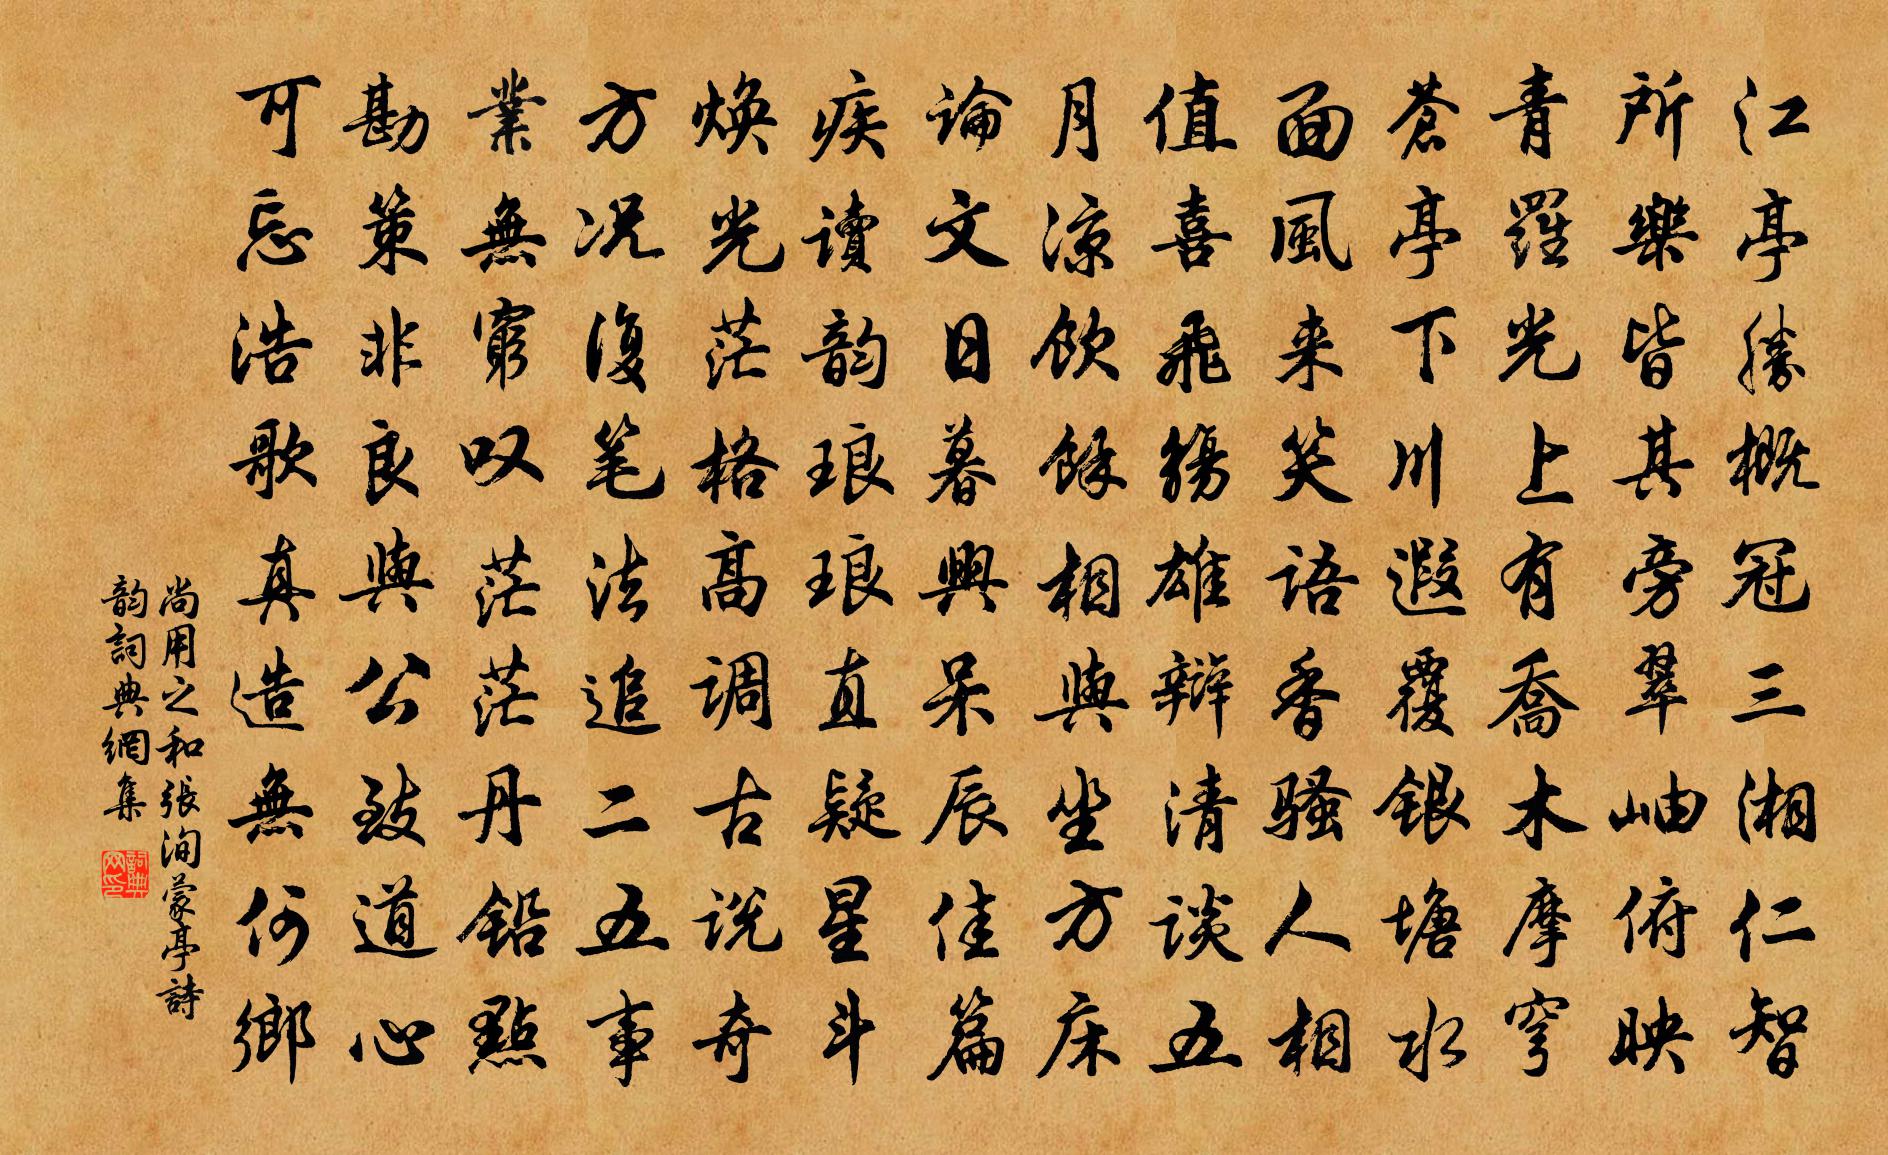 江亭勝概冠三湘仁智
所樂皆其旁翠岫俯映
青羅光上有喬木摩穹
蒼亭下川遐覆銀塘水
面風来笑語香騷人相
值喜飛觴雄辯清談五
月涼飲餘相與坐方床
論文日暮興呆辰佳篇
疾讀韵琅琅直疑星斗
煥光茫格高調古説奇
方况復笔法追二五事
業無窮叹茫茫丹鉛點
勘策非良與公致道心
可忘浩歌真造無何鄉
尚用之和張洵蒙亭詩
韵詞典網集